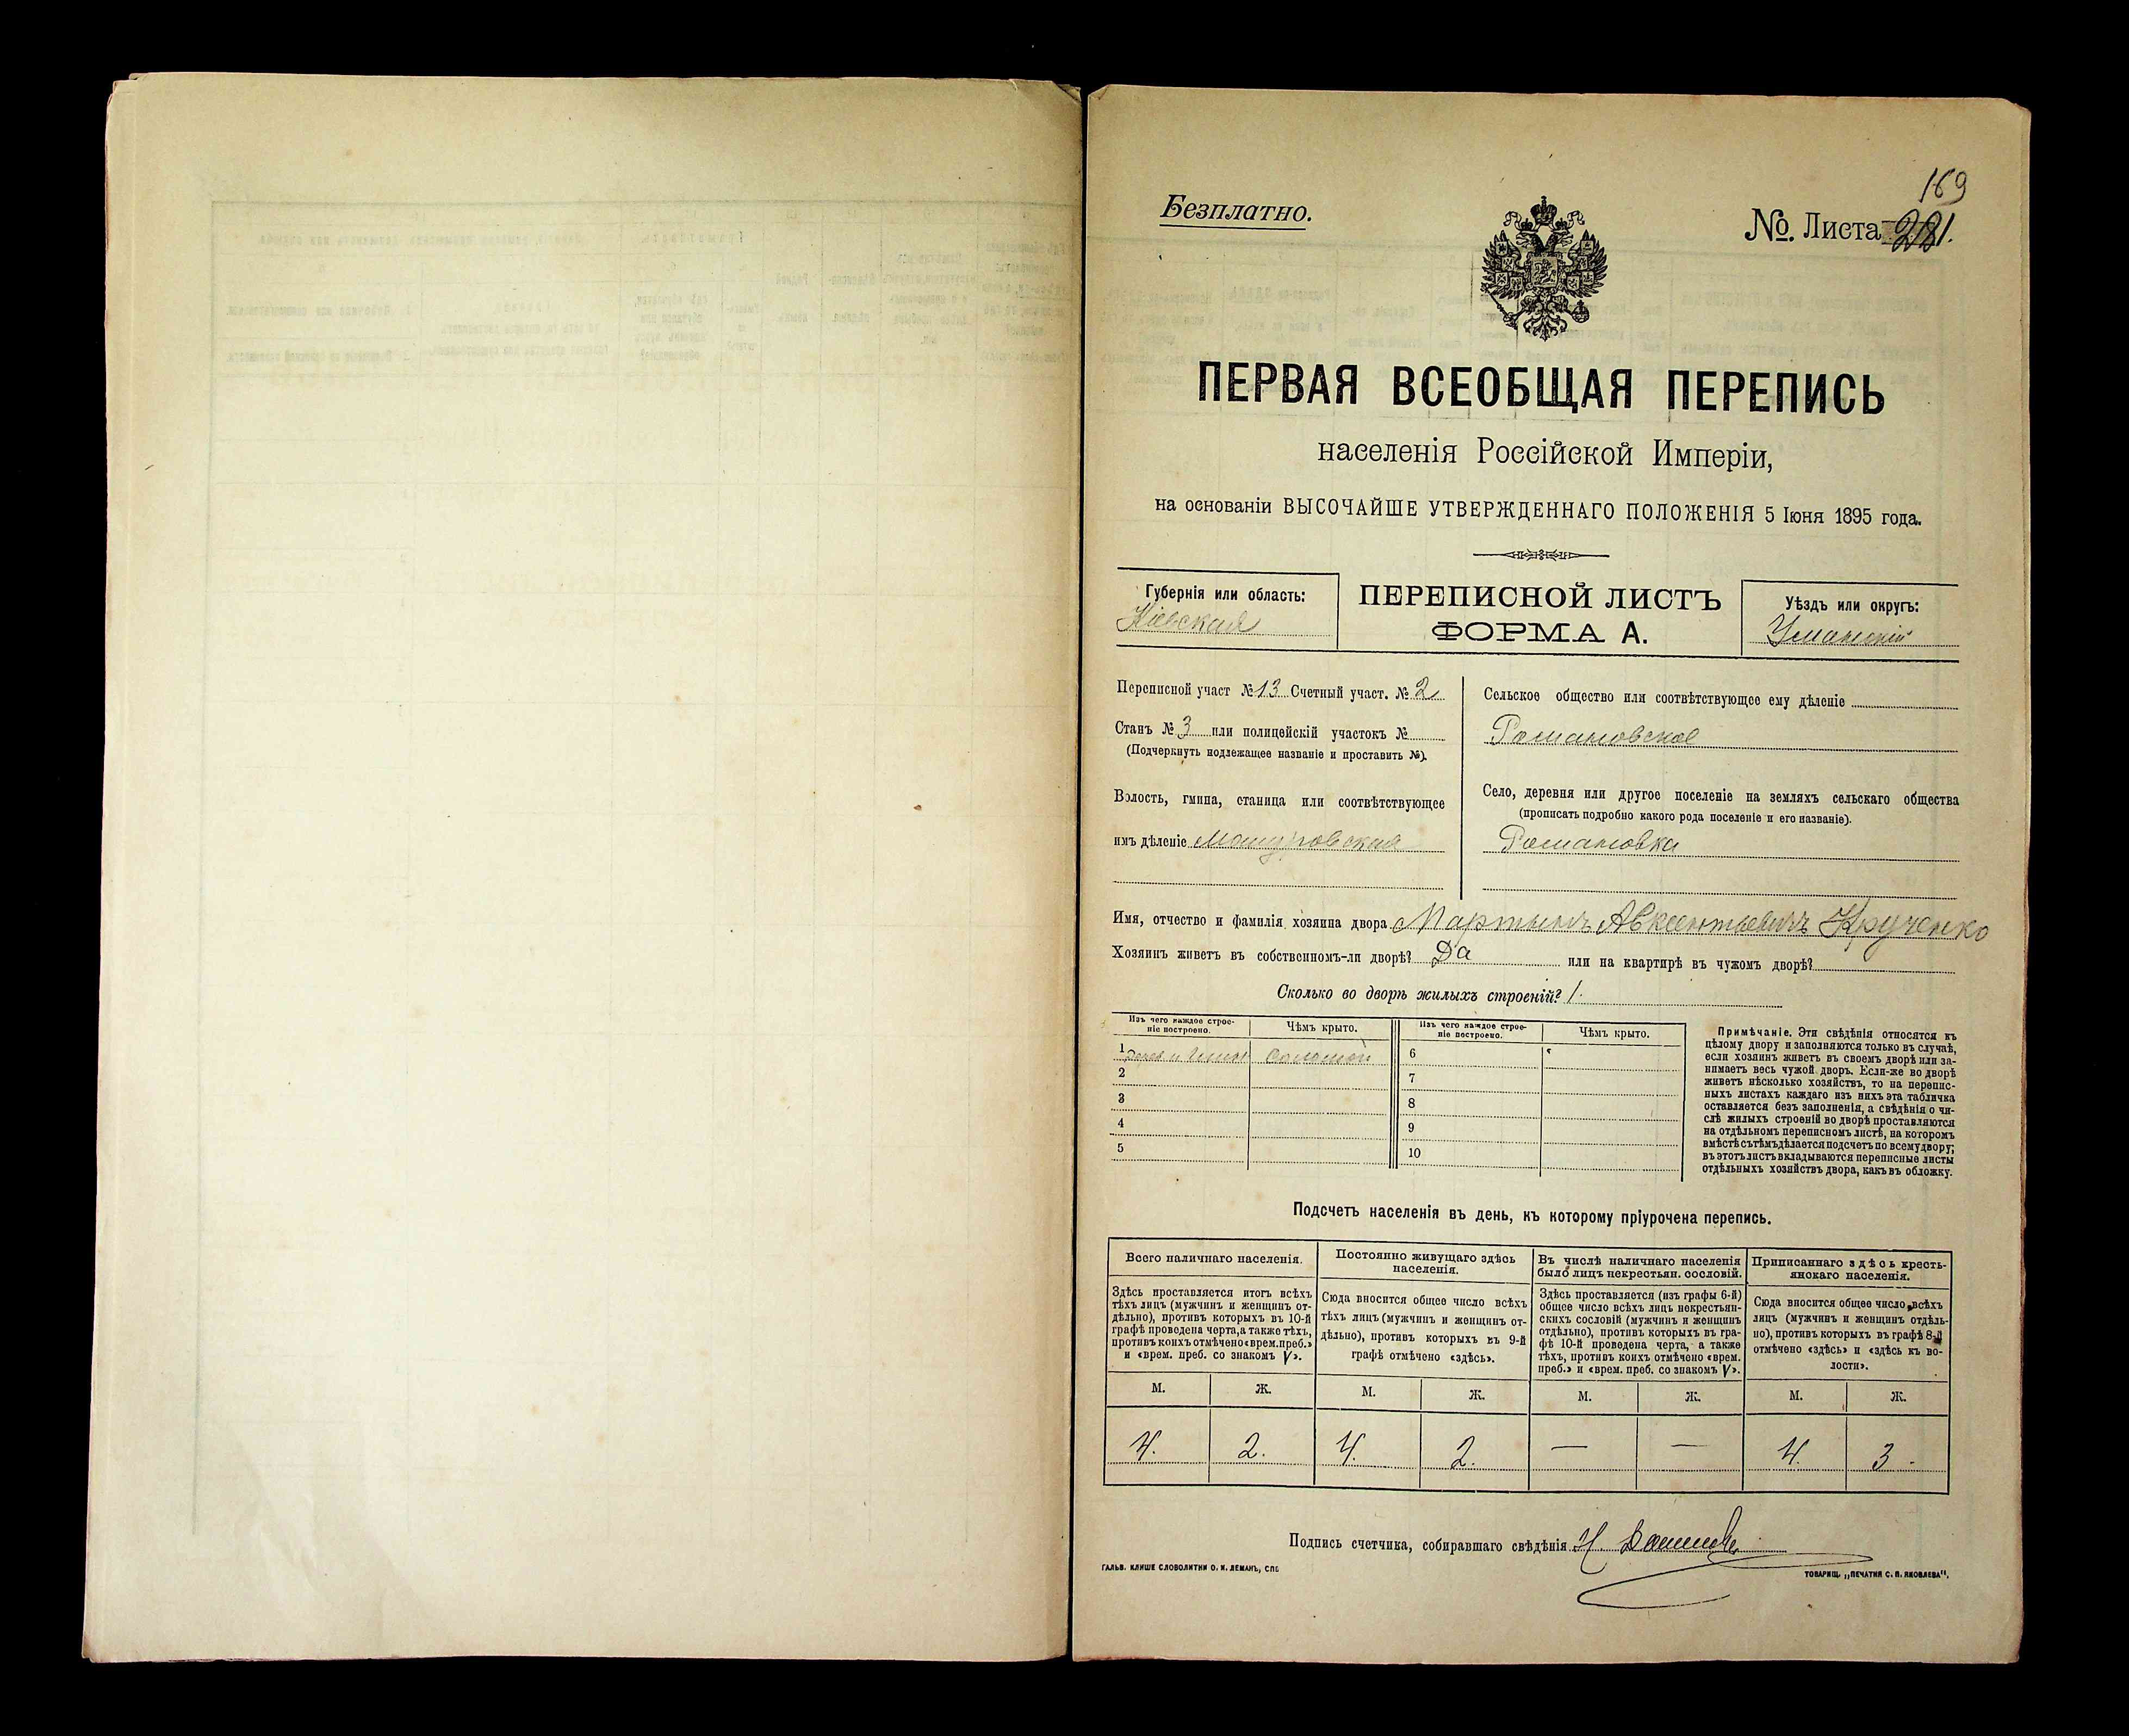 169
Безплатно.
№. Листа 281.
ПЕРВАЯ ВСЕОБЩАЯ ПЕРЕПИСЬ
населенія Россійской Имперіи,
на основаніи ВЫСОЧАЙШЕ УТВЕРЖДЕННАГО ПОЛОЖЕНІЯ 5 Іюня 1895 года.
Губернія или область:
Кіевская
ПЕРЕПИСНОЙ ЛИСТЪ
ФОРМА А.
Уѣздъ или округъ:
Уманскій
Переписной участ №13 Счетный участ. №2
Станъ №3 или полицейскій участокъ №
(Подчеркнуть подлежащее названіе и проставить №).
Волость, гмина, станица или соотвѣтствующее
имъ дѣленіе
Сельское общество или соотвѣтствующее ему дѣленіе
Романовское
Село, деревня или другое поселеніе на земляхъ сельскаго общества
(прописать подробно какого рода поселеніе и его названіе).
Романовка
Имя, отчество и фамилія хозяина двора Мартынъ Авксентьевичъ Крученко
Хозяинъ живетъ въ собственномъ-ли дворѣ? Да или на квартирѣ въ чужомъ дворѣ?
Сколько во дворѣ жилыхъ строеній? 1.
Изъ чего каждое строе-
ніе построено.
Чѣмъ крыто.
Изъ чего каждое строе-
ніе построено.
Чѣмъ крыто.
1 Соломой
2
3
4
5
6
7
8
9
10
Примѣчаніе. Эти свѣдѣнія относятся къ
цѣлому двору и заполняются только въ случаѣ,
если хозяинъ живетъ въ своемъ дворѣ или за-
нимаетъ весь чужой дворъ. Если-же во дворѣ
живетъ нѣсколько хозяйствъ, то на перепис-
ныхъ листахъ каждаго изъ нихъ эта табличка
оставляется безъ заполненія, а свѣдѣнія о чи-
слѣ жилыхъ строеній во дворѣ проставляются
на отдѣльномъ переписномъ листѣ, на которомъ
вмѣстѣ съ тѣмъ дѣлается подсчетъ по всему двору;
въ этотъ листъ вкладываются переписные листы
отдѣльныхъ хозяйствъ двора, какъ въ обложку.
Подсчетъ населенія въ день, къ которому пріурочена перепись.
Всего наличнаго населенія.
Здѣсь проставляется итогъ всѣхъ
тѣхъ лицъ (мужчинъ и женщинъ от-
дѣльно), противъ которыхъ въ 10-й
графѣ проведена черта, а также тѣхъ,
противъ коихъ отмѣчено «врем. преб.»
и «врем. преб. со знакомъ V».
Постоянно живущаго здѣсь
населенія.
Сюда вносится общее число всѣхъ
тѣхъ лицъ (мужчинъ и женщинъ от-
дѣльно), противъ которыхъ въ 9-й
графѣ отмѣчено «здѣсь».
Въ числѣ наличнаго населенія
было лицъ некрестьян. сословій.
Здѣсь проставляется (изъ графы 6-й)
общее число всѣхъ лицъ некрестьян-
скихъ сословій (мужчинъ и женщинъ
отдѣльно), противъ которыхъ въ гра-
фѣ 10-й проведена черта, а также
тѣхъ, противъ коихъ отмѣчено «врем.
преб.» и «врем. преб. со знакомъ V».
Приписаннаго здѣсь кресть-
янскаго населенія.
Сюда вносится общее число всѣхъ
лицъ (мужчинъ и женщинъ отдѣль-
но), противъ которыхъ въ графѣ 8-й
отмѣчено «здѣсь» и «здѣсь къ во-
лости».
М. Ж. М. Ж. М. Ж. М. Ж.
4. 2. 4. 2. — — 4. 3.
Подпись счетчика, собиравшаго свѣдѣнія
ГАЛЬВ. КЛИШЕ СЛОВОЛИТНИ О. И. ЛЕМАНЪ, СПБ
ТОВАРИЩ. „ПЕЧАТНЯ С. П. ЯКОВЛЕВА“.